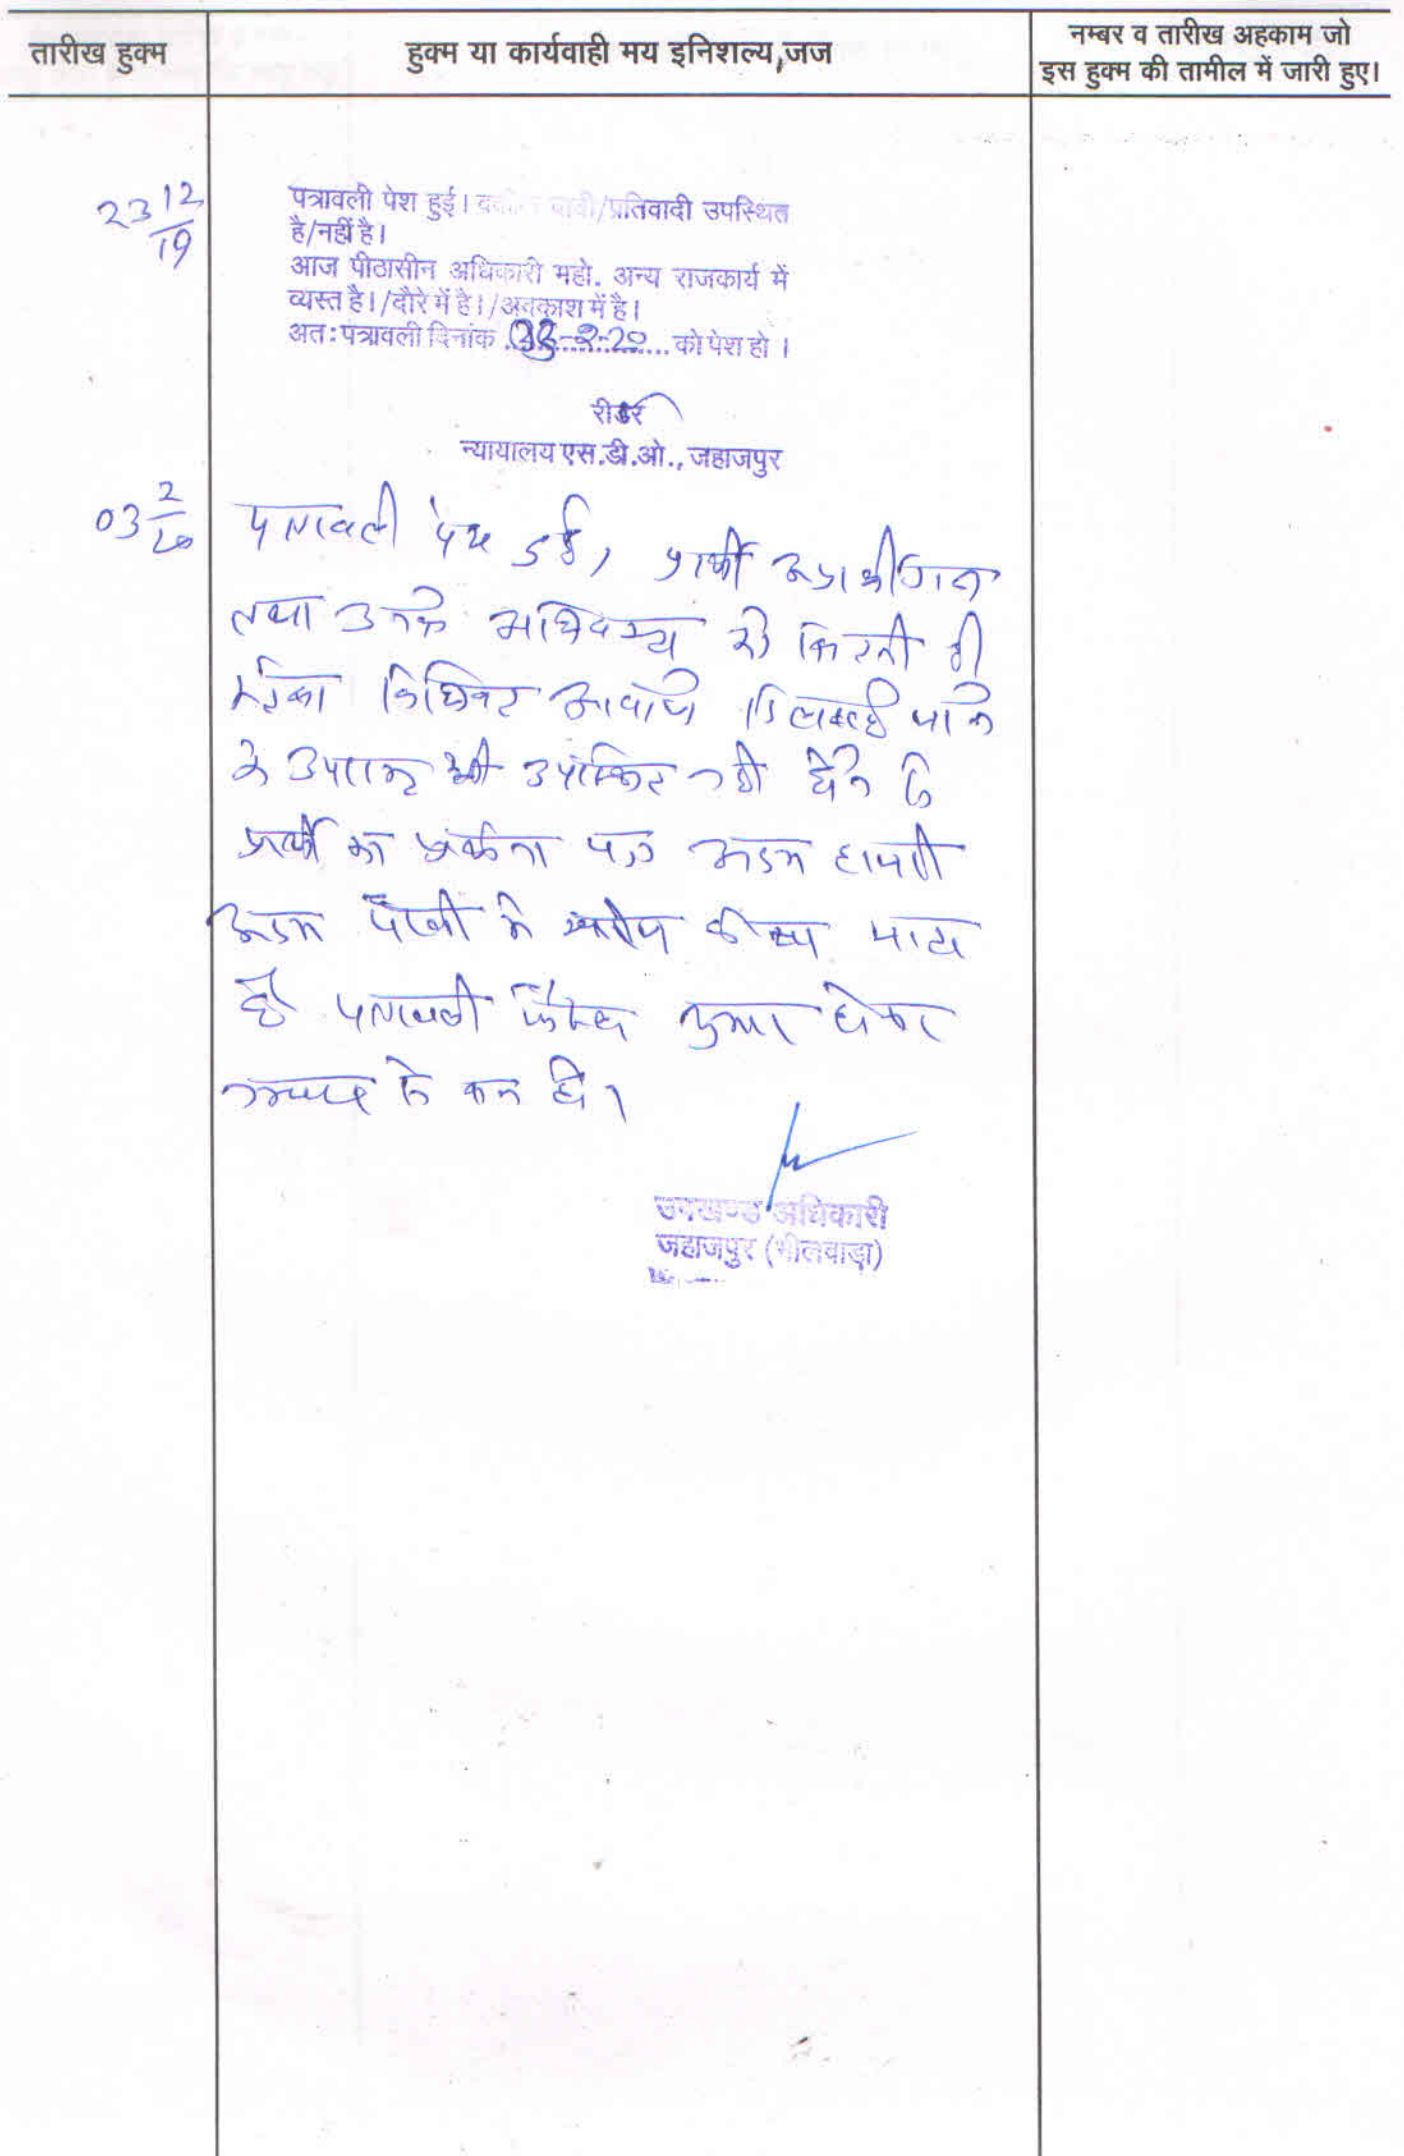 तारीख हुक्म
हुक्म या कार्यवाही मय इनिशल्य,जज
नम्बर व तारीख अहकाम जो
इस हुक्म की तामील में जारी हुए।
23 12/19
पत्रावली पेश हुई। वादी/प्रतिवादी उपस्थित
है/नहीं है।
आज पीठासीन अधिकारी महो. अन्य राजकार्य में
व्यस्त है।/दौरे में है।/अवकाश में है।
अतः पत्रावली दिनांक 03-2-20 को पेश हो ।
रीडर
न्यायालय एस.डी.ओ., जहाजपुर
03 2/20
पत्रावली पेश हुई, प्रार्थी अप्रार्थीगण
तथा उनके अधिवक्ता को कितनी ही
विधिवत आवाजे दिलवाई जाने
के उपरान्त भी उपस्थित नही होने से
प्रार्थी का प्रार्थना पत्र अदम हाजरी
अदम पैरवी मे खारीज किया जाता
है पत्रावली फैसल शुमार होकर
नम्बर से कम हो।
उपखण्ड अधिकारी
जहाजपुर (भीलवाड़ा)